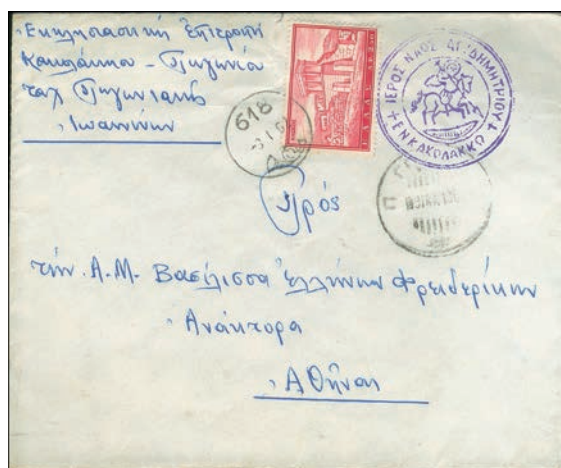 Ἐκκλησιαστική Ἐπιτροπή
Κακολάκκου - Πωγωνίου
ταχ Πωγωνιανῆς
Ἰωαννίνων
ΕΛΛΑΣ
618
ΙΕΡΟΣ ΝΑΟΣ ΑΓ. ΔΗΜΗΤΡΙΟΥ
ΕΝ ΚΑΚΟΛΑΚΚΩ
Πρός
τήν Α.Μ. Βασίλισσα Ἑλλήνων Φρειδερίκην
Ἀνάκτορα
Ἀθῆναι